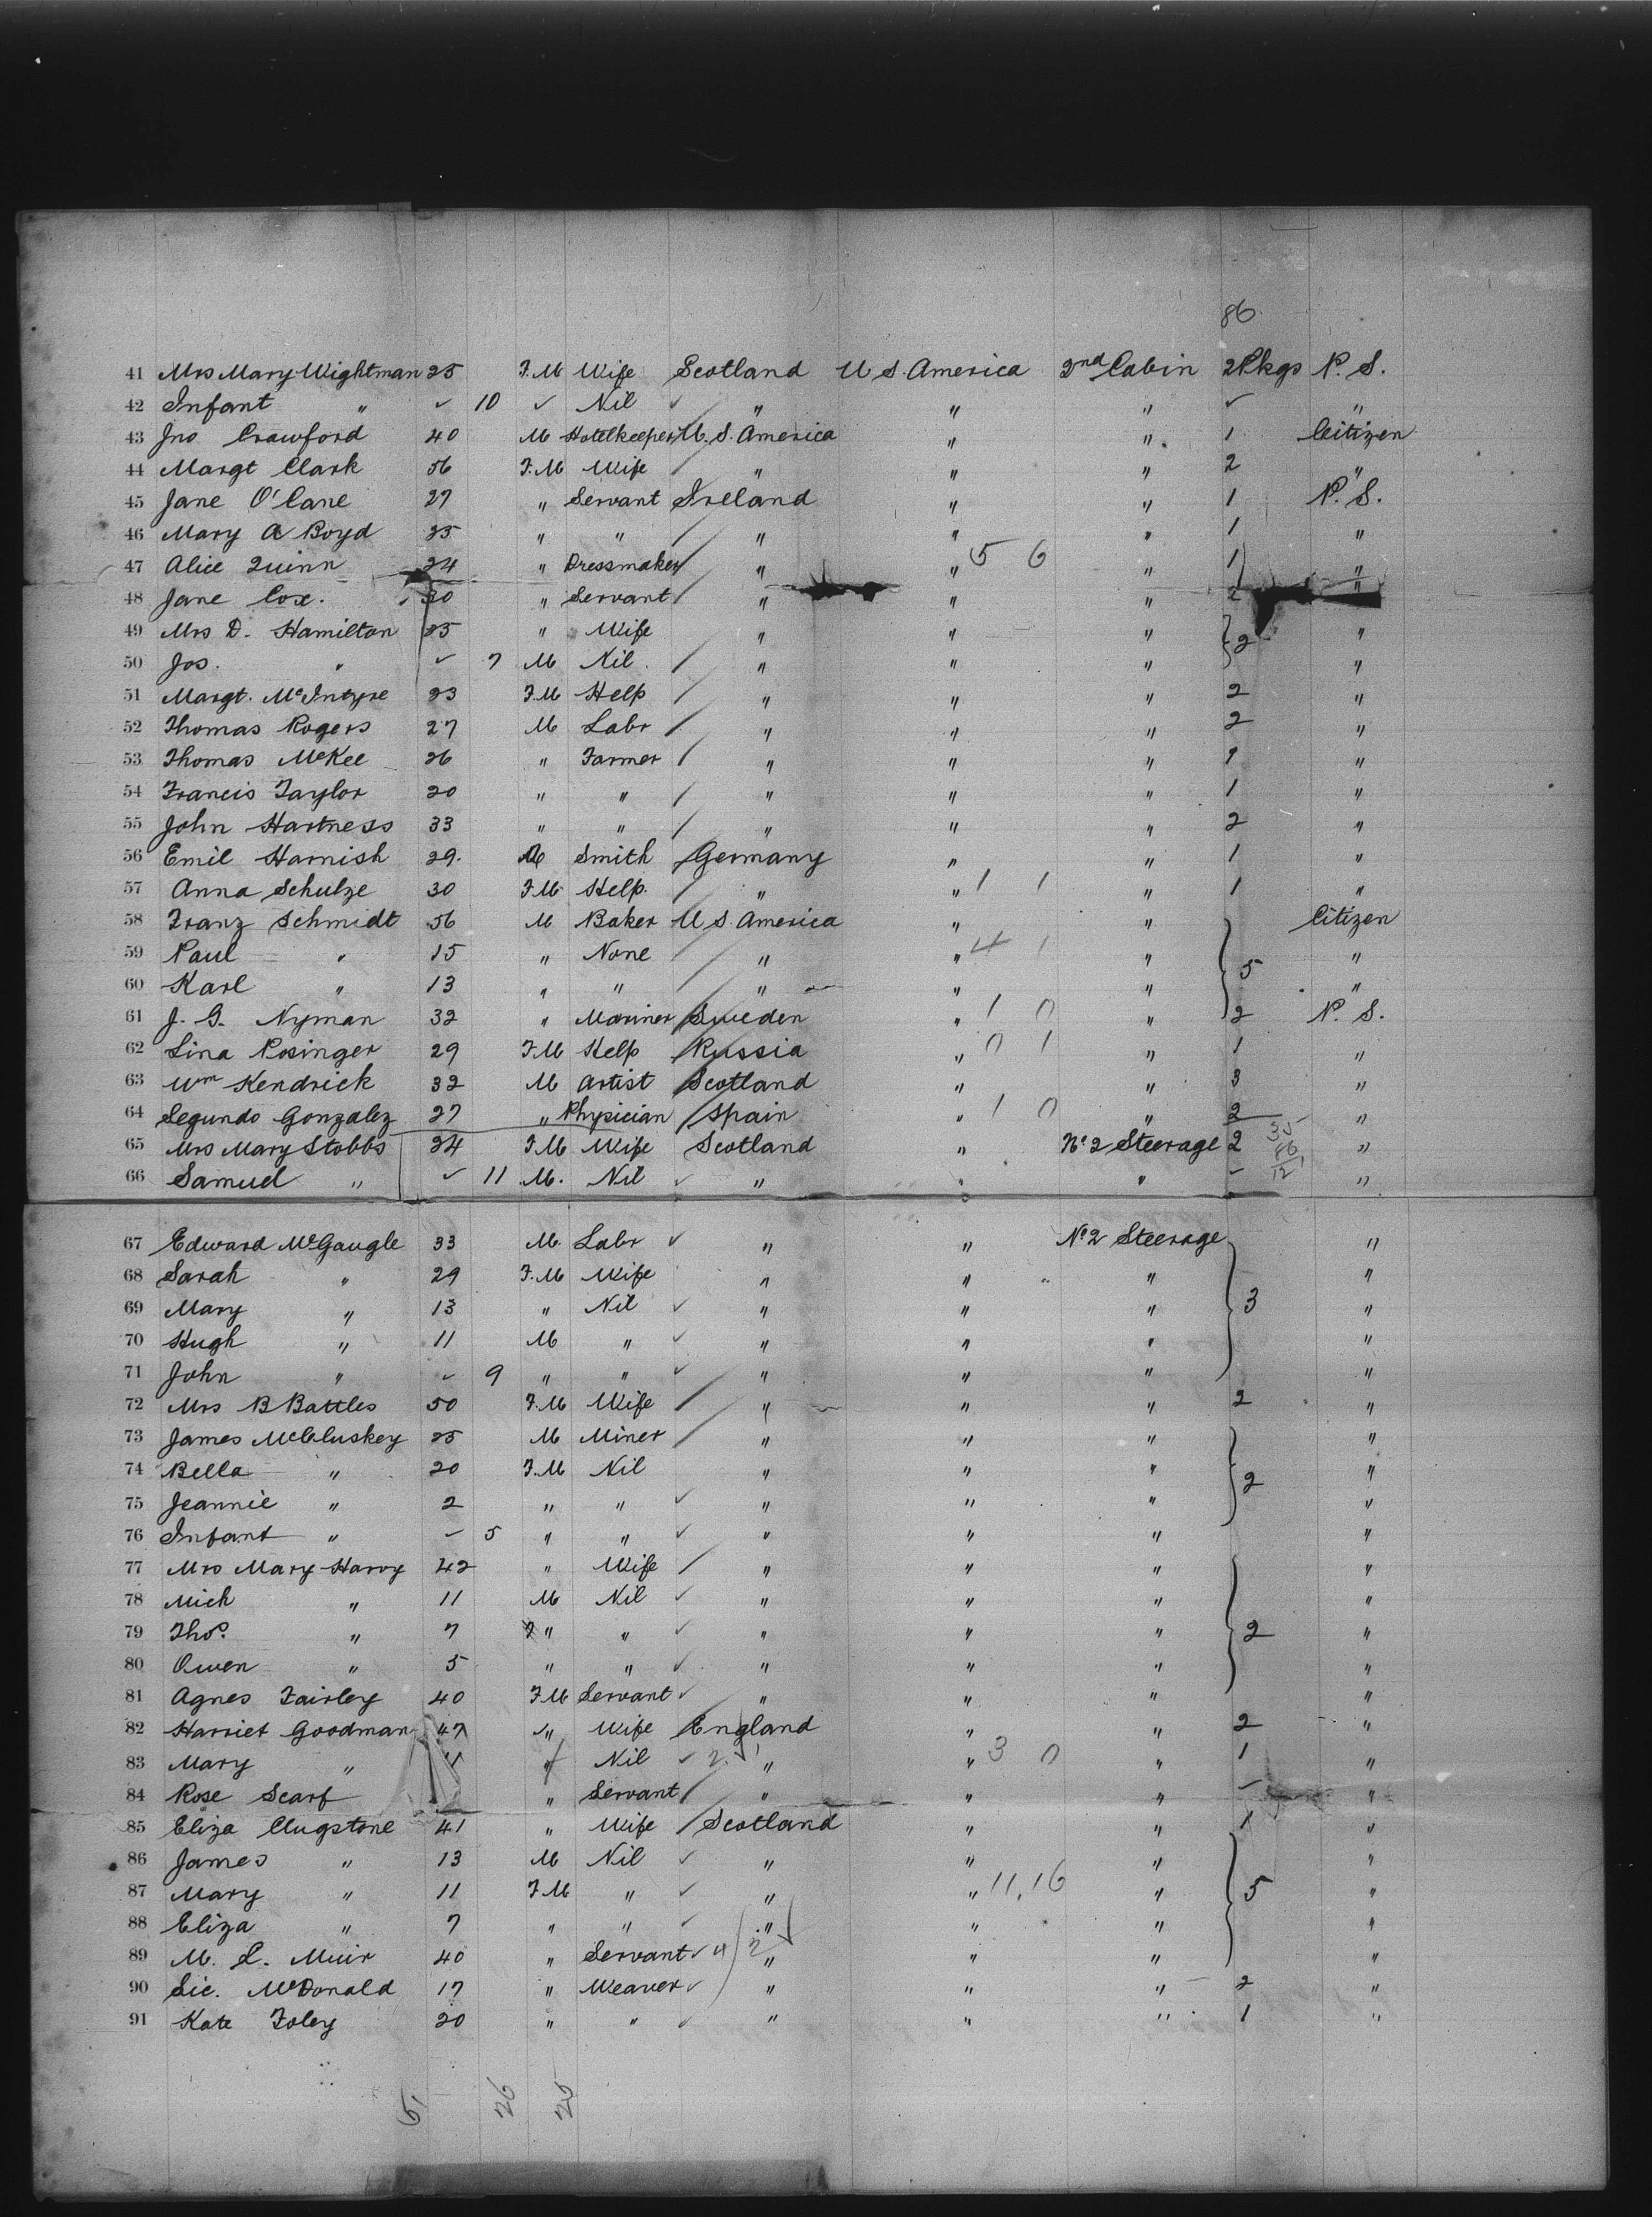 86
41 Mrs Mary Wightman 25 F.M Wife Scotland U S. America 2nd Cabin 2 Pkgs P. S.
42 Infant " ✓ 10 ✓ Nil ✓ " " " ✓ "
43 Jno Crawford 40 M Hotelkeeper U. S. America " " 1 Citizen
44 Margt Clark 56 F.M Wife / " " " 2 "
45 Jane O'Cane 27 " Servant Ireland " " 1 P. S.
46 Mary A Boyd 25 " " / " " " 1 "
47 Alice Quinn 24 " Dressmaker / " " 5 6 " 1 "
48 Jane Cox. 30 " Servant / " " " 2 "
49 Mrs D. Hamilton 25 " Wife " " " } 2 "
50 Jos. " ✓ 7 M Nil. / " " " "
51 Margt. McIntyre 23 F.M Help / " " " 2 "
52 Thomas Rogers 27 M Labr / " " " 2 "
53 Thomas McKee 26 " Farmer / " " " 1 "
54 Francis Taylor 20 " " / " " " 1 "
55 John Hartness 33 " " / " " " 2 "
56 Emil Harnish 29. M Smith / Germany " " 1 "
57 Anna Schulze 30 F.M Help. / " " 1 1 " 1 "
58 Franz Schmidt 56 M Baker U S. America " " Citizen
59 Paul " 15 " None / " " 4 1 " } 5 "
60 Karl " 13 " " / " " " "
61 J. G. Nyman 32 " Mariner / Sweden " 1 0 " 2 P. S.
62 Lina Rosinger 29 F.M Help / Russia " 0 1 " 1 "
63 Wm Kendrick 32 M Artist / Scotland " " 3 "
64 Segundo Gonzalez 27 " Physician / Spain " 1 0 " 2 "
65 Mrs Mary Stobbs 34 F.M Wife Scotland " No 2 Steerage 2 "
66 Samuel " ✓ 11 M. Nil ✓ " " " - "
67 Edward McGaugle 33 M. Labr ✓ " " No 2 Steerage "
68 Sarah " 29 F.M Wife " " " "
69 Mary " 13 " Nil ✓ " " " } 3 "
70 Hugh " 11 M " ✓ " " " "
71 John " ✓ 9 " " ✓ " " " "
72 Mrs B Battles 50 F.M Wife / " " " 2 "
73 James McCluskey 25 M Miner / " " " "
74 Bella " 20 F.M Nil " " " } 2 "
75 Jeannie " 2 " " ✓ " " " "
76 Infant " ✓ 5 " " ✓ " " " "
77 Mrs Mary Harvy 42 " Wife / " " " "
78 Mich " 11 M Nil ✓ " " " "
79 Thos. " 7 " " ✓ " " " } 2 "
80 Owen " 5 " " ✓ " " " "
81 Agnes Fairley 40 F.M Servant ✓ " " " "
82 Harriet Goodman 47 " Wife / England " " 2 "
83 Mary " " Nil ✓ " " 3 0 " 1 "
84 Rose Scarf " Servant / " " " - "
85 Eliza Clugstone 41 " Wife / Scotland " " 1 "
86 James " 13 M Nil ✓ " " " "
87 Mary " 11 F.M " ✓ " " 11,16 " } 5 "
88 Eliza " 7 " " ✓ " " " "
89 M. L. Muir 40 " Servant ✓ " " " "
90 Lie. McDonald 17 " Weaver ✓ " " " 2 "
91 Kate Foley 20 " " ✓ " " " 1 "
51 26 25